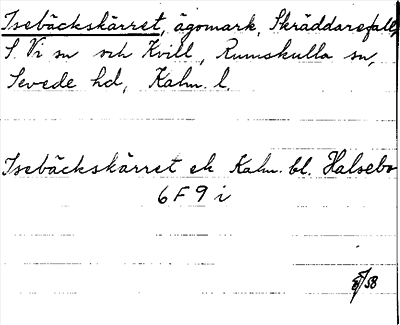 Isebäckskärret, ägomark, Skräddarefall,
S. Vi sn och Kvill, Rumskulla sn,
Sevede hd, Kalm. l.
Isebäckskärret ek Kalm. bl. Halsebo
6 F 9 i
/58